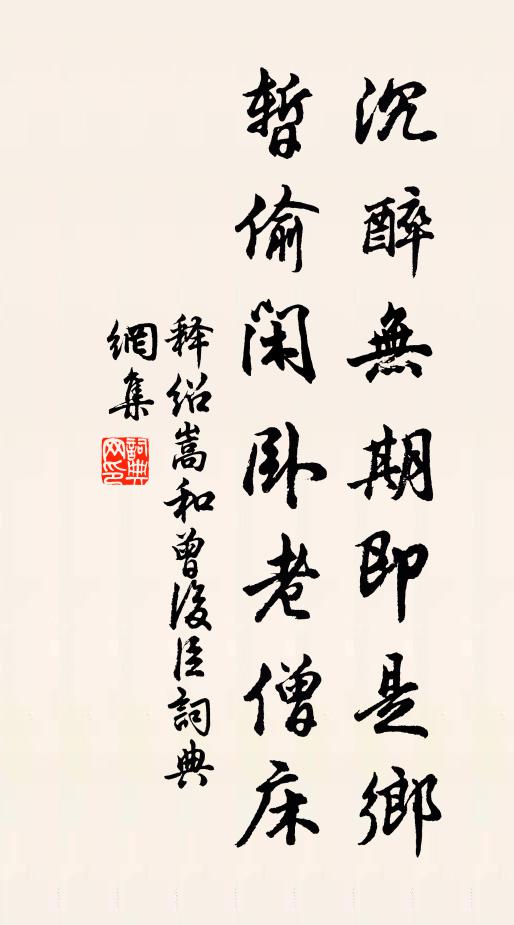 沉醉無期即是鄉
暫偷閑卧老僧床
释紹嵩和曾復臣詞典
網集
詞典
网印